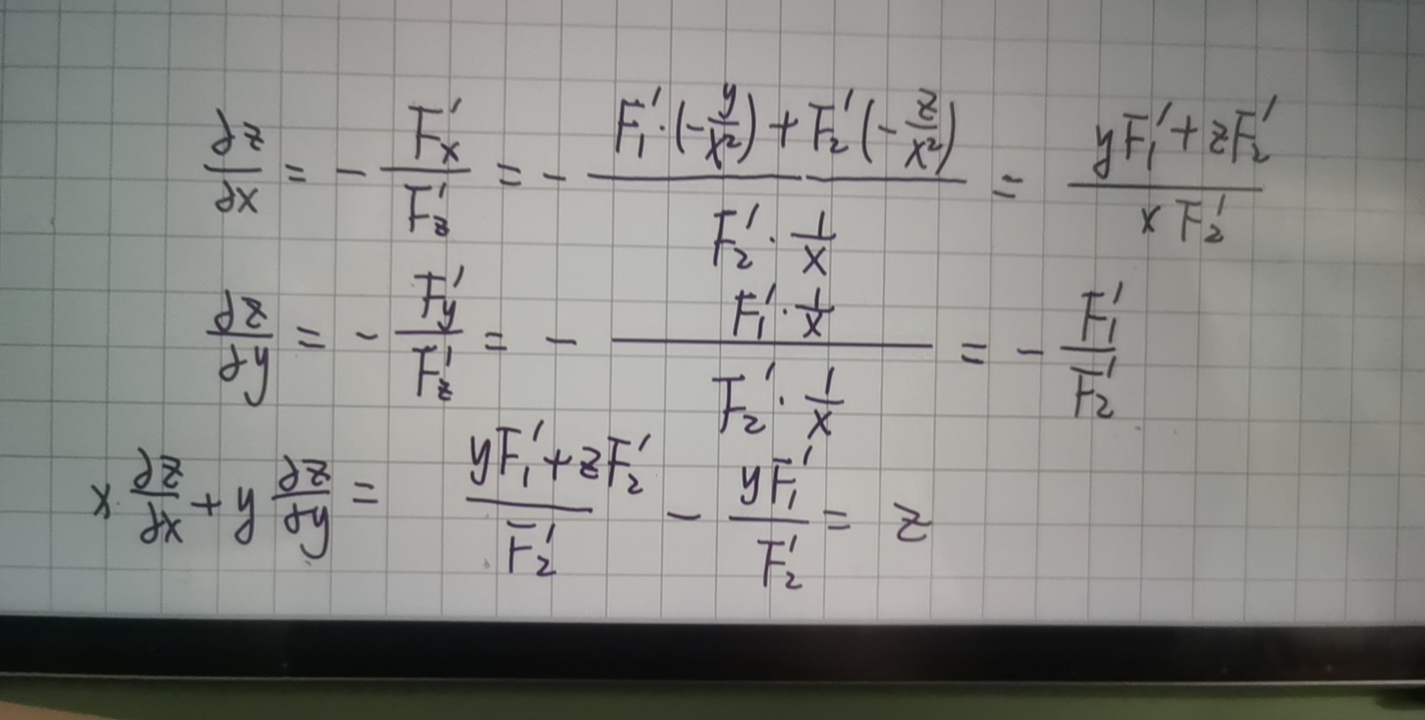 ∂z/∂x = - F'x/F'z = - (F'₁·(-y/x²) + F'₂(-z/x²))/(F'₂·1/x) = (yF'₁ + zF'₂)/(xF'₂)
∂z/∂y = - F'y/F'z = - (F'₁·1/x)/(F'₂·1/x) = - F'₁/F'₂
x ∂z/∂x + y ∂z/∂y = (yF'₁ + zF'₂)/F'₂ - yF'₁/F'₂ = z